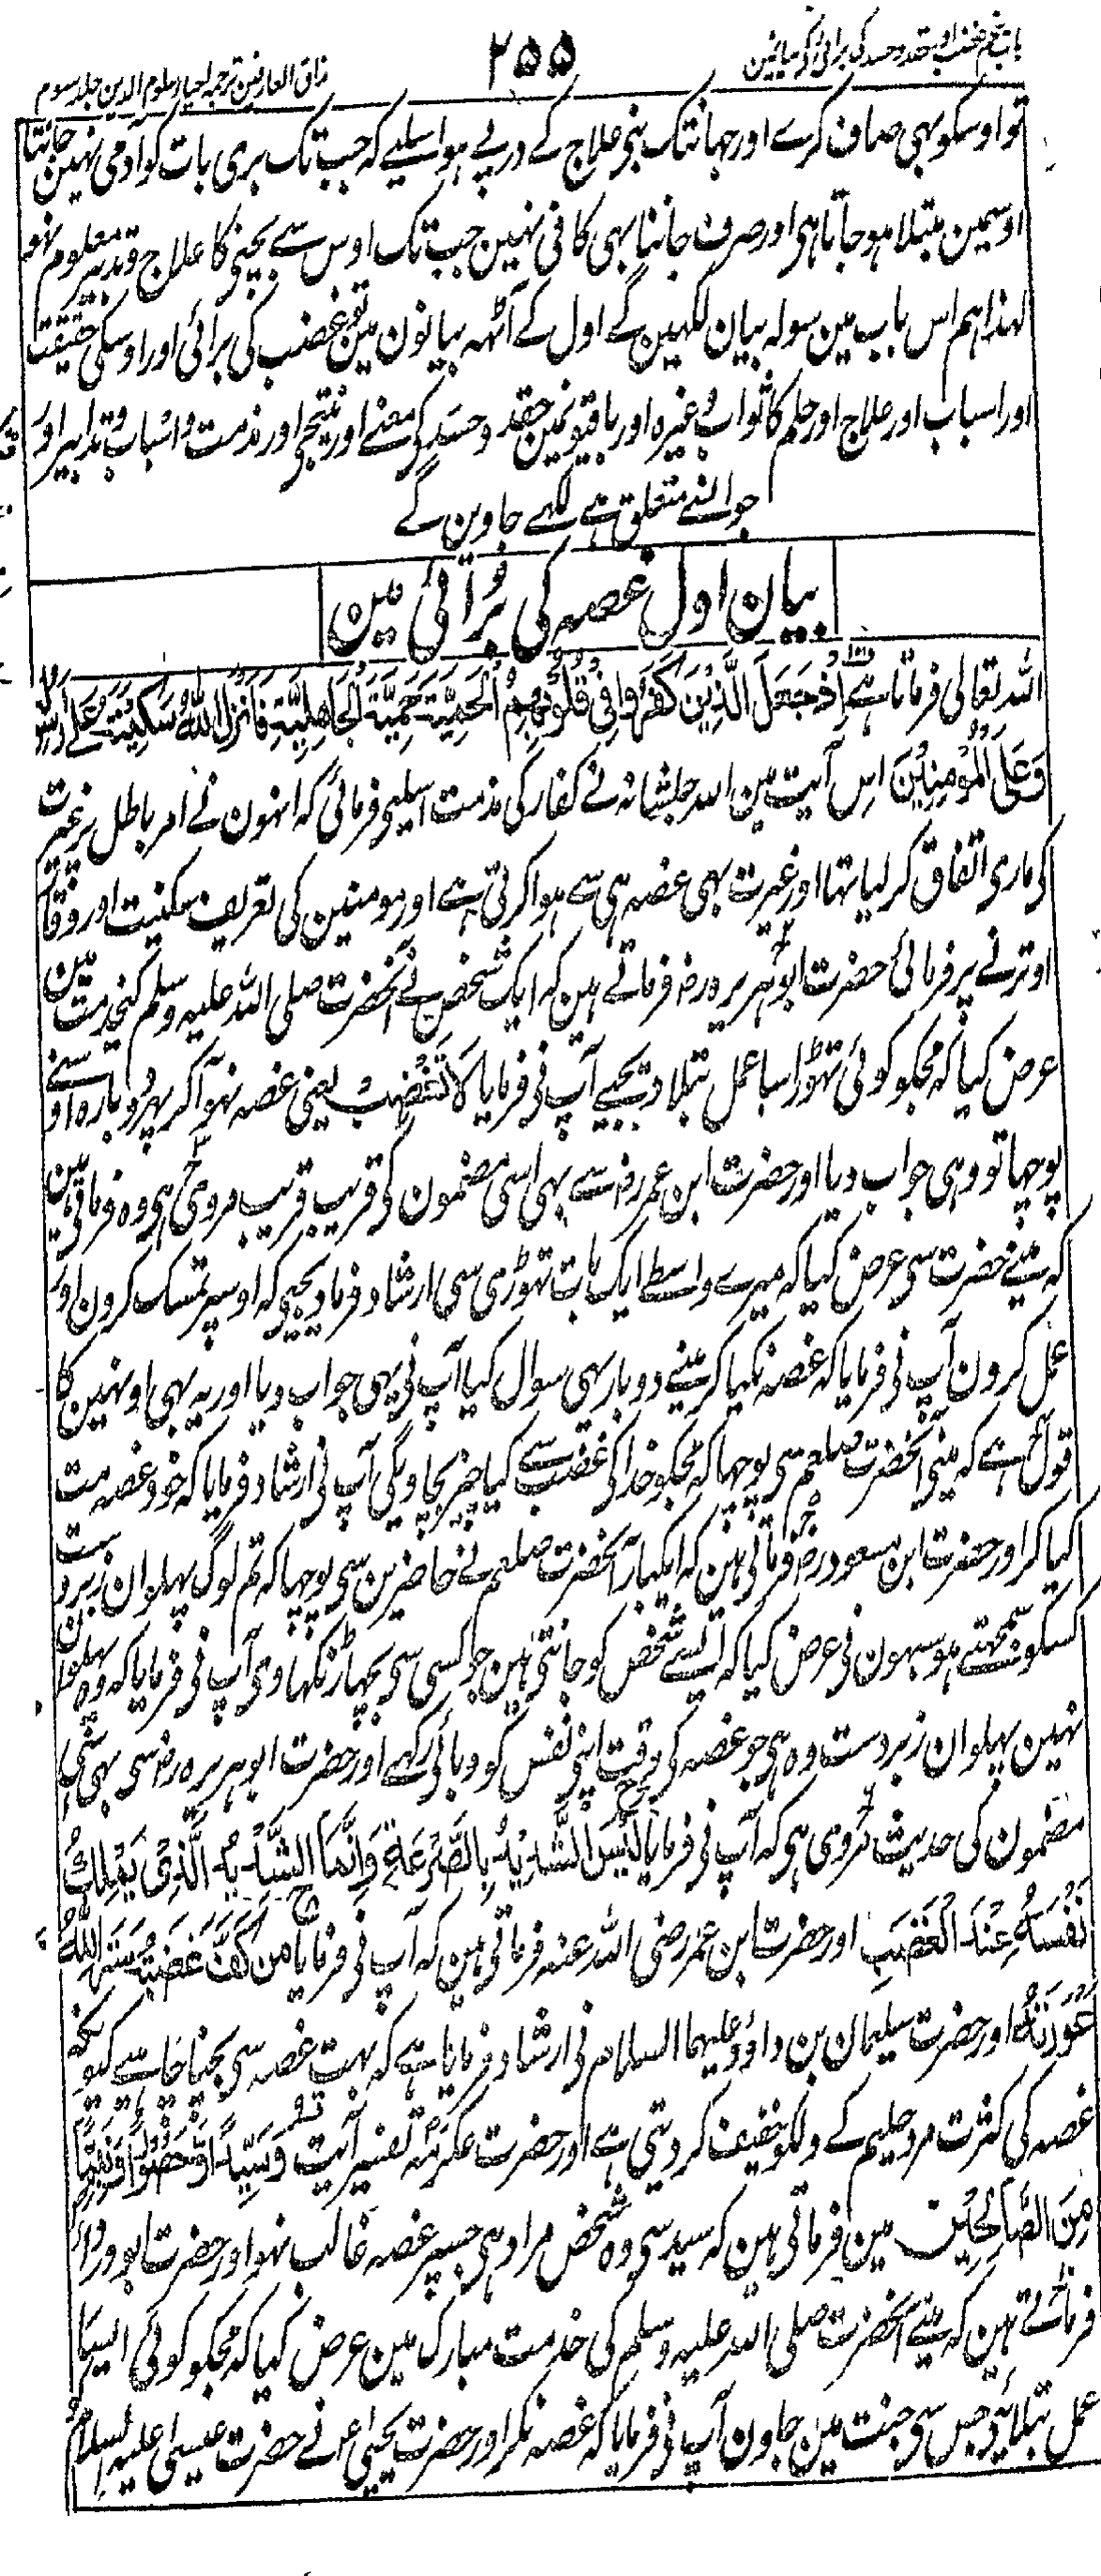 باب پنجم غضب اور حقد و حسد کی برائی کے بیانمین
۲۵۵
مذاق العارفین ترجمہ احیاء علوم الدین جلد سوم
تو اوسکو بہی صاف کرے اور جہانتک بنے علاج کے درپے ہو اسلیے کہ جب تک بری بات کو آدمی نہین جانتا
اوسمین مبتلا ہو جاتا ہی اور صرف جاننا بہی کافی نہین جب تک اوس سے بچنے کا علاج و تدبیر معلوم نہو
لہذا ہم اس باب مین سولہ بیان لکہین گے اول کے آٹہہ بیانون مین تو غضب کی برائی اور اوسکی حقیقت
اور اسباب اور علاج اور حلم کا ثواب وغیرہ اور باقیونمین حقد و حسد کے معنے اور نتیجے اور مذمت و اسباب و تدابیر اور
جو النے متعلق ہے لکہے جاوین گے
بیان اول غصہ کی برائی مین
اللہ تعالی فرماتا ہے اِذْ جَعَلَ الَّذِيْنَ كَفَرُوْا فِيْ قُلُوْبِهِمُ الْحَمِيَّةَ حَمِيَّةَ الْجَاهِلِيَّةِ فَاَنْزَلَ اللّٰهُ سَكِيْنَتَهٗ عَلٰى رَسُوْلِهٖ
وَعَلَى الْمُؤْمِنِيْنَ اس آیت مین اللہ جلشانہ نے کفار کی مذمت اسلیے فرمائی کہ انہون نے امر باطل پر غیرت
کی ماری اتفاق کر لیا تہا اور غیرت بہی غصہ ہی سے ہوا کرتی ہے اور مومنین کی تعریف سکینت اور وقار
اوترنے پر فرمائی حضرت ابوہریرہ رض فرماتے ہین کہ ایک شخص نے آنحضرت صلی اللہ علیہ وسلم کیخدمت مین
عرض کیا کہ مجکو کوئی تہوڑا سا عمل بتلا دیجیے آپ نی فرمایا لَا تَغْضَبْ یعنی غصہ نہو آکر پہر دوبارہ اوسنے
پوچہا تو وہی جواب دیا اور حضرت ابن عمر رض سے بہی اسی مضمون کی قریب قریب مروی ہی وہ فرماتی ہین
کہ مینے حضرت سی عرض کیا کہ میرے واسطے ایک بات تہوڑی سی ارشاد فرما دیجیے کہ اوسپر تمسک کرون اور
عمل کرون آپ نی فرمایا کہ غصہ نکیا کر مینے دوبار بہی سوال کیا آپ نی یہی جواب دیا اور یہ بہی اونہین کا
قول ہے کہ مینی آنحضرت صلعم سی پوچہا کہ مجکو خدا کی غضب سے کیا چیز بچاویگی آپ نی ارشاد فرمایا کہ خود غصہ مت
کیا کر اور حضرت ابن مسعود رض فرماتی ہین کہ ایکبار آنحضرت صلعم نے حاضرین سی پوچہا کہ تم لوگ پہلوان زبردست
کسکو سمجہتے ہو سبہون نی عرض کیا کہ ایسے شخص کو جانتی ہین جو کسی سی پچہاڑ نکہاوی آپ نی فرمایا کہ وہ پہلوان
نہین پہلوان زبردست وہ ہی جو غصہ کی وقت اپنی نفس کو دبائی رکہے اور حضرت ابوہریرہ رض سی بہی اسی
مضمون کی حدیث مروی ہی کہ آپ نی فرمایا لَيْسَ الشَّدِيْدُ بِالصُّرَعَةِ وَاِنَّمَا الشَّدِيْدُ الَّذِيْ يَمْلِكُ
نَفْسَهٗ عِنْدَ الْغَضَبِ اور حضرت ابن عمر رضی اللہ عنہ فرماتی ہین کہ آپ نی فرمایا مَنْ كَفَّ غَضَبَهٗ سَتَرَ اللّٰهُ
عَوْرَتَهٗ اور حضرت سلیمان بن داؤد علیہما السلام نی ارشاد فرمایا ہے کہ بہت غصہ سی بچنا چاہیے کیونکہ
غصہ کی کثرت مرد حلیم کے دلکو خفیف کر دیتی ہے اور حضرت عکرمہ تفسیر آیت وَسَيِّدًا وَّحَصُوْرًا وَّنَبِيًّا
مِّنَ الصَّالِحِيْنَ مین فرماتی ہین کہ سید سی وہ شخص مراد ہی جسپر غصہ غالب نہو اور حضرت ابو دردا
فرماتے ہین کہ مینے آنحضرت صلی اللہ علیہ وسلم کی خدمت مبارک مین عرض کیا کہ مجکو کوئی ایسا
عمل بتلائیی جس سی جنت مین جاون آپ نی فرمایا کہ غصہ نکر اور حضرت یحییٰ ع نے حضرت عیسی علیہ السلام